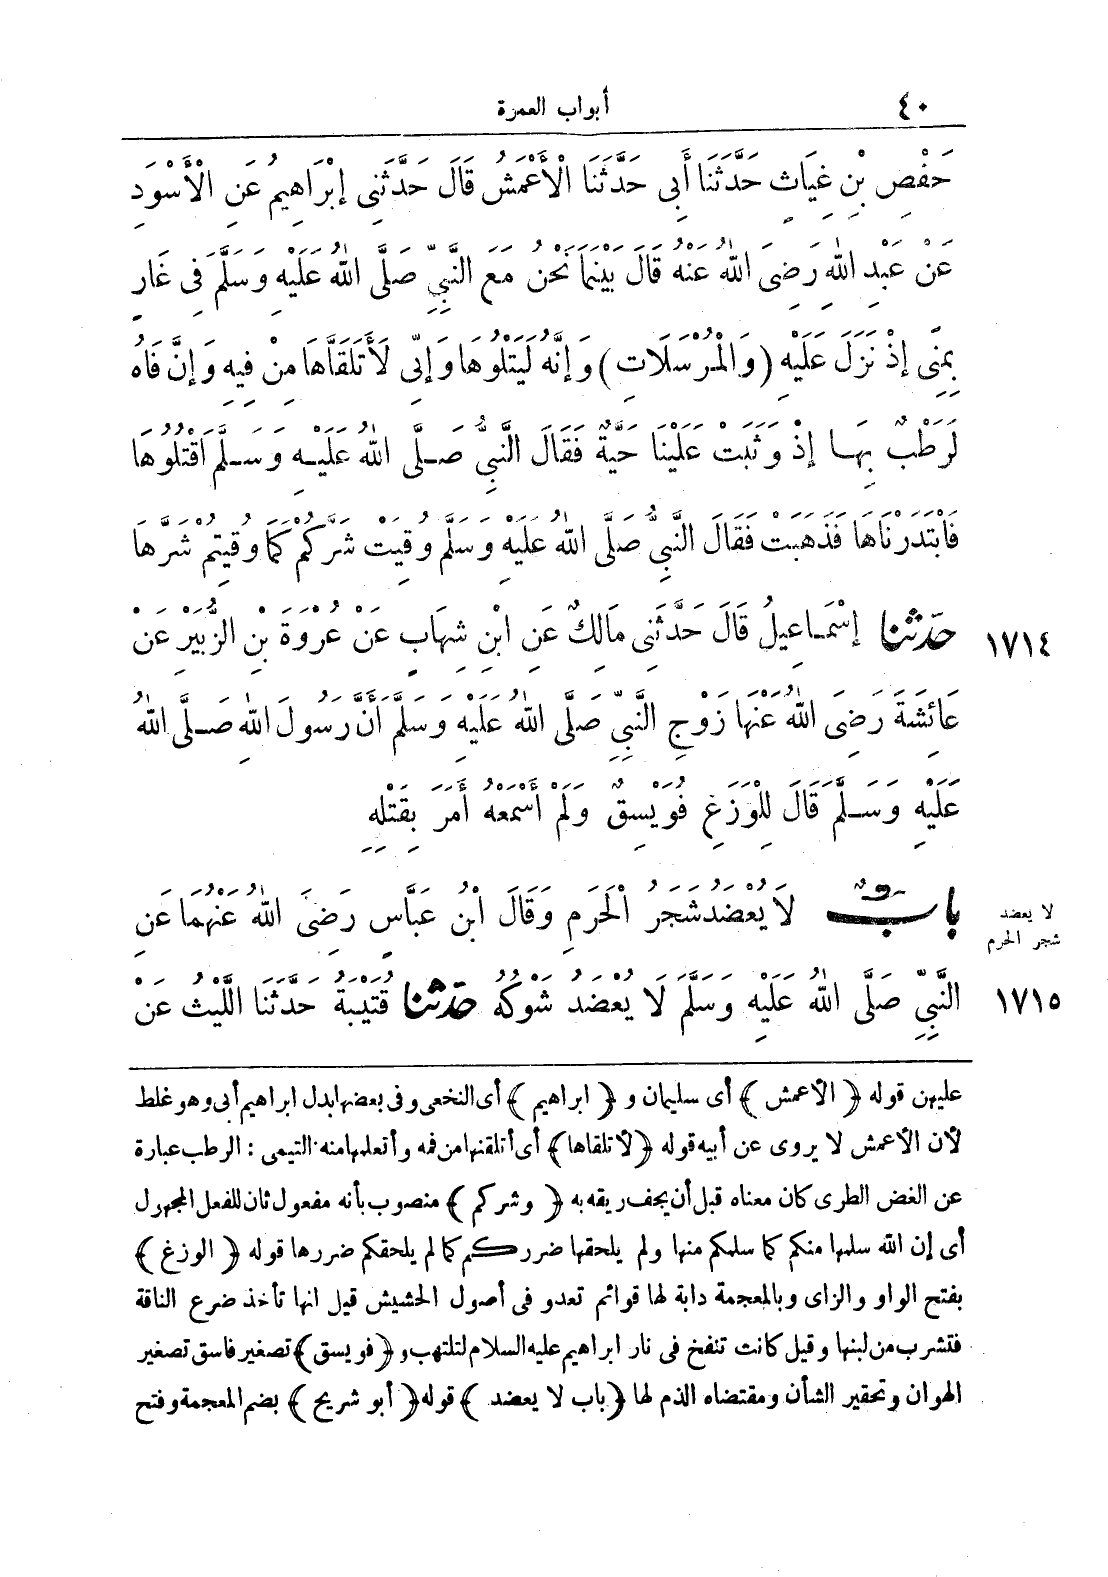 ٤٠ أبواب العمرة
حَفْصِ بْنِ غِيَاثٍ حَدَّثَنَا أَبِي حَدَّثَنَا الْأَعْمَشُ قَالَ حَدَّثَنِي إِبْرَاهِيمُ عَنِ الْأَسْوَدِ
عَنْ عَبْدِ اللّٰهِ رَضِيَ اللّٰهُ عَنْهُ قَالَ بَيْنَمَا نَحْنُ مَعَ النَّبِيِّ صَلَّى اللّٰهُ عَلَيْهِ وَسَلَّمَ فِي غَارٍ
بِمِنًى إِذْ نَزَلَ عَلَيْهِ (وَالْمُرْسَلَاتِ) وَإِنَّهُ لَيَتْلُوهَا وَإِنِّي لَأَتَلَقَّاهَا مِنْ فِيهِ وَإِنَّ فَاهُ
لَرَطْبٌ بِهَا إِذْ وَثَبَتْ عَلَيْنَا حَيَّةٌ فَقَالَ النَّبِيُّ صَلَّى اللّٰهُ عَلَيْهِ وَسَلَّمَ اقْتُلُوهَا
فَابْتَدَرْنَاهَا فَذَهَبَتْ فَقَالَ النَّبِيُّ صَلَّى اللّٰهُ عَلَيْهِ وَسَلَّمَ وُقِيَتْ شَرَّكُمْ كَمَا وُقِيتُمْ شَرَّهَا
١٧١٤ حَدَّثَنَا إِسْمَاعِيلُ قَالَ حَدَّثَنِي مَالِكٌ عَنِ ابْنِ شِهَابٍ عَنْ عُرْوَةَ بْنِ الزُّبَيْرِ عَنْ
عَائِشَةَ رَضِيَ اللّٰهُ عَنْهَا زَوْجِ النَّبِيِّ صَلَّى اللّٰهُ عَلَيْهِ وَسَلَّمَ أَنَّ رَسُولَ اللّٰهِ صَلَّى اللّٰهُ
عَلَيْهِ وَسَلَّمَ قَالَ لِلْوَزَغِ فُوَيْسِقٌ وَلَمْ أَسْمَعْهُ أَمَرَ بِقَتْلِهِ
بَابٌ لَا يُعْضَدُ شَجَرُ الْحَرَمِ وَقَالَ ابْنُ عَبَّاسٍ رَضِيَ اللّٰهُ عَنْهُمَا عَنِ
لا يعضد
شجر الحرم
١٧١٥ النَّبِيِّ صَلَّى اللّٰهُ عَلَيْهِ وَسَلَّمَ لَا يُعْضَدُ شَوْكُهُ حَدَّثَنَا قُتَيْبَةُ حَدَّثَنَا اللَّيْثُ عَنْ
عليهن قوله ﴿الأعمش﴾ أى سليمان و ﴿ابراهيم﴾ أى النخعى وفى بعضها بدل ابراهيم أبى وهو غلط
لأن الأعمش لا يروى عن أبيه قوله ﴿لأتلقاها﴾ أى أتلقنها من فمه وأتعلمها منه. التيمى : الرطب عبارة
عن الغض الطرى كان معناه قبل أن يجف ريقه به ﴿وشركم﴾ منصوب بأنه مفعول ثان للفعل المجهول
أى إن الله سلمها منكم كما سلمكم منها ولم يلحقها ضرركم كما لم يلحقكم ضررها قوله ﴿الوزغ﴾
بفتح الواو والزاى وبالمعجمة دابة لها قوائم تعدو فى أصول الحشيش قيل انها تأخذ ضرع الناقة
فتشرب من لبنها وقيل كانت تنفخ فى نار ابراهيم عليه السلام لتلتهب و ﴿فويسق﴾ تصغير فاسق تصغير
الهوان وتحقير الشأن ومقتضاه الذم لها ﴿باب لا يعضد﴾ قوله ﴿أبو شريح﴾ بضم المعجمة وفتح